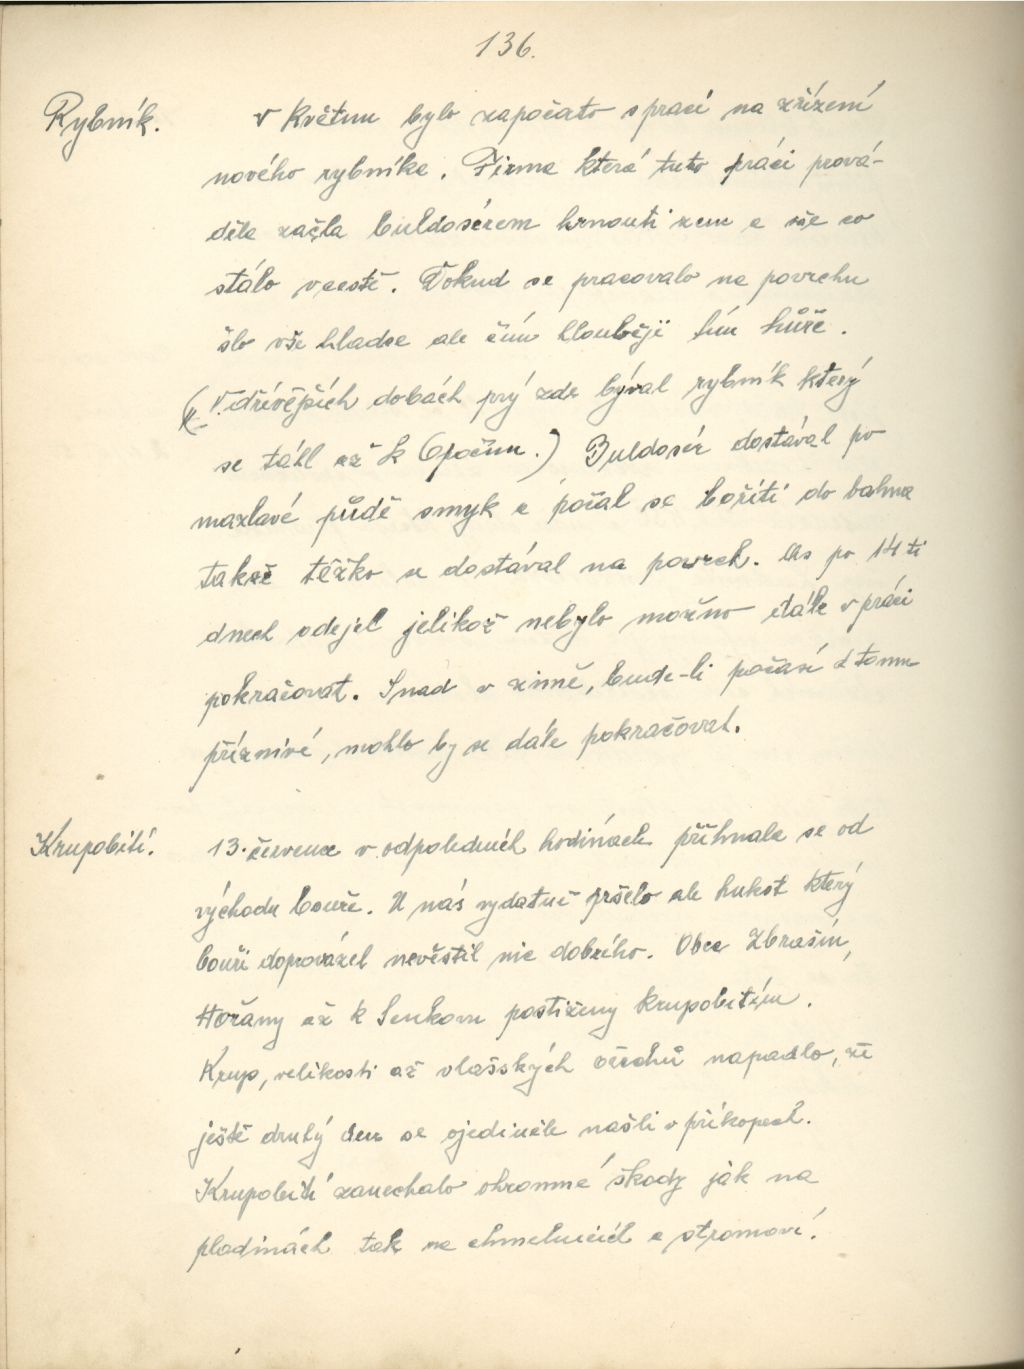 136.
Rybník.
V květnu bylo započato s prací na zřízení
nového rybníka. Firma která tuto práci prová-
děla začla buldosérem hrnouti zem a vše co
stálo v cestě. Pokud se pracovalo na povrchu
šlo vše hladce ale čím hlouběji tím hůře.
(V dřívějších dobách prý zde býval rybník který
se táhl až k Opočnu.) Buldosér dostával po
mazlavé půdě smyk a počal se bořiti do bahna
takže těžko se dostával na povrch. As po 14ti
dnech odejel jelikož nebylo možno dále v práci
pokračovat. Snad v zimě, bude-li počasí k tomu
příznivé, mohlo by se dále pokračovat.
Krupobití.
13. července v odpoledních hodinách přihnala se od
východu bouře. U nás vydatně pršelo ale hukot který
bouři doprovázel nevěstil nic dobrého. Obce Zbrašín,
Hořany až k Senkovu postiženy krupobitím.
Krup, velikosti až vlašských ořechů napadlo, že
ještě druhý den se ojediněle našli v příkopech.
Krupobití zanechalo ohromné škody jak na
plodinách tak na chmelnicích a stromoví.